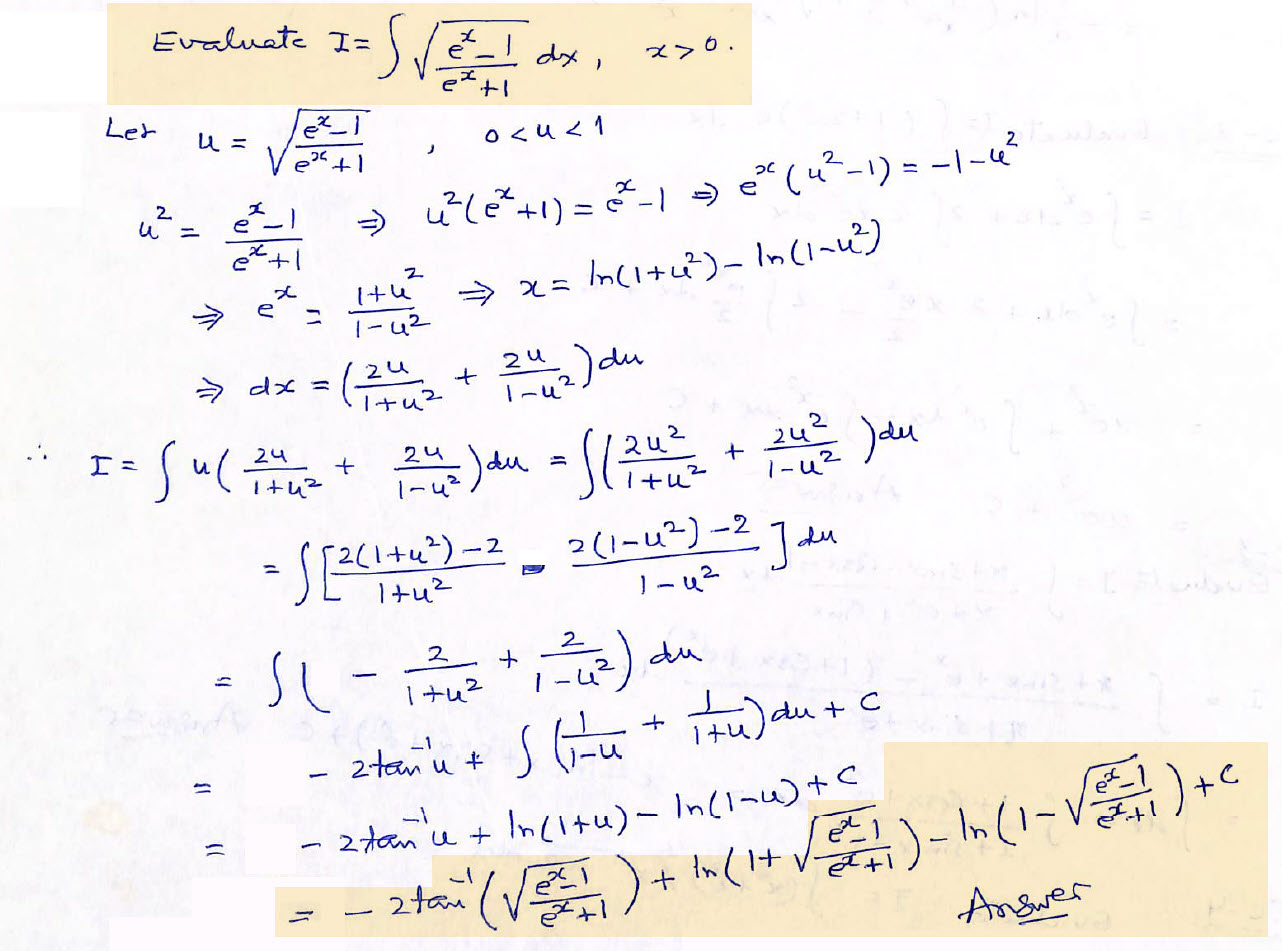 Evaluate I = ∫ √((e^x − 1)/(e^x + 1)) dx , x > 0.
Let u = √((e^x − 1)/(e^x + 1)) , 0 < u < 1
u² = (e^x − 1)/(e^x + 1) ⇒ u²(e^x + 1) = e^x − 1 ⇒ e^x (u² − 1) = −1 − u²
⇒ e^x = (1 + u²)/(1 − u²) ⇒ x = ln(1 + u²) − ln(1 − u²)
⇒ dx = (2u/(1 + u²) + 2u/(1 − u²)) du
∴ I = ∫ u (2u/(1 + u²) + 2u/(1 − u²)) du = ∫ (2u²/(1 + u²) + 2u²/(1 − u²)) du
= ∫ [(2(1 + u²) − 2)/(1 + u²) − (2(1 − u²) − 2)/(1 − u²)] du
= ∫ ( − 2/(1 + u²) + 2/(1 − u²)) du
= − 2 tan⁻¹ u + ∫ (1/(1 − u) + 1/(1 + u)) du + C
= − 2 tan⁻¹ u + ln(1 + u) − ln(1 − u) + C
= − 2 tan⁻¹ (√((e^x − 1)/(e^x + 1))) + ln(1 + √((e^x − 1)/(e^x + 1))) − ln(1 − √((e^x − 1)/(e^x + 1))) + C
Answer